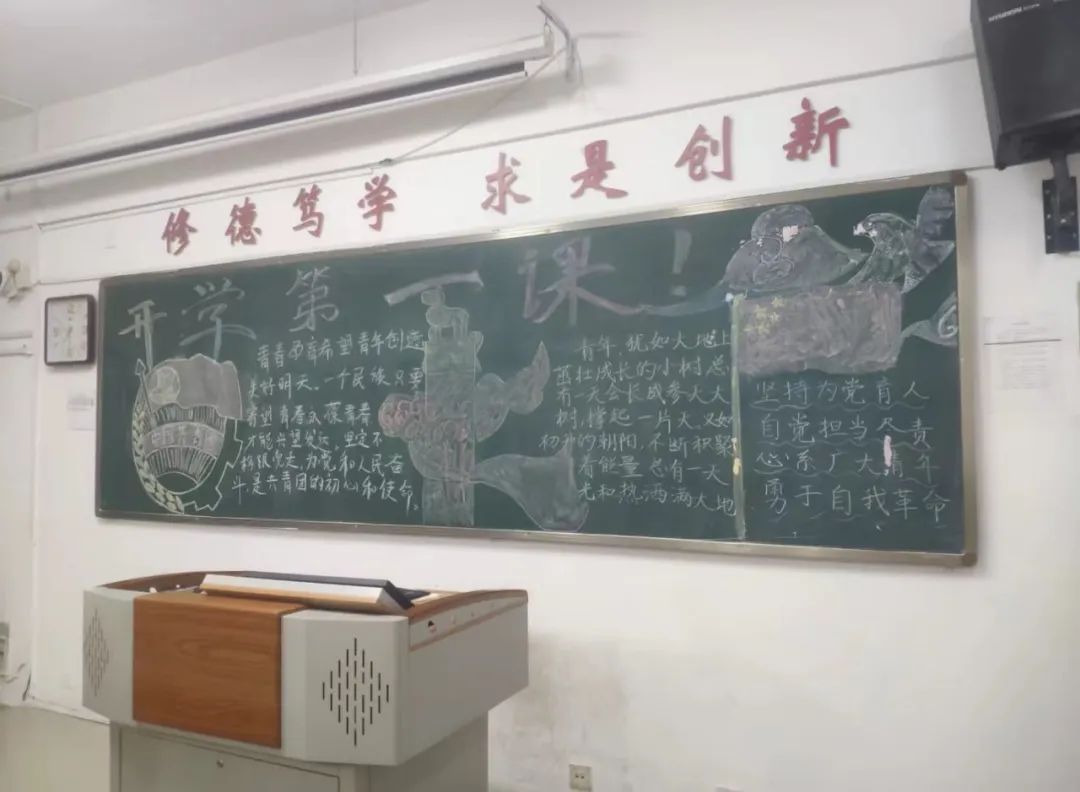 修德笃学 求是创新
开学第一课！
青春孕育希望青年创造
美好明天。一个民族只要
有望青春永葆青春
才能兴望发达 坚定不
移跟党走，为党和人民奋
斗，是共青团的初心和使命。
青年，犹如大地上
茁壮成长的小树总
有一天会长成参天大
树，撑起一片天。又如
初升的朝阳，不断积聚
着能量 总有一天
光和热洒满大地
坚持为党育人
自觉担当尽责
心系广大青年
勇于自我革命